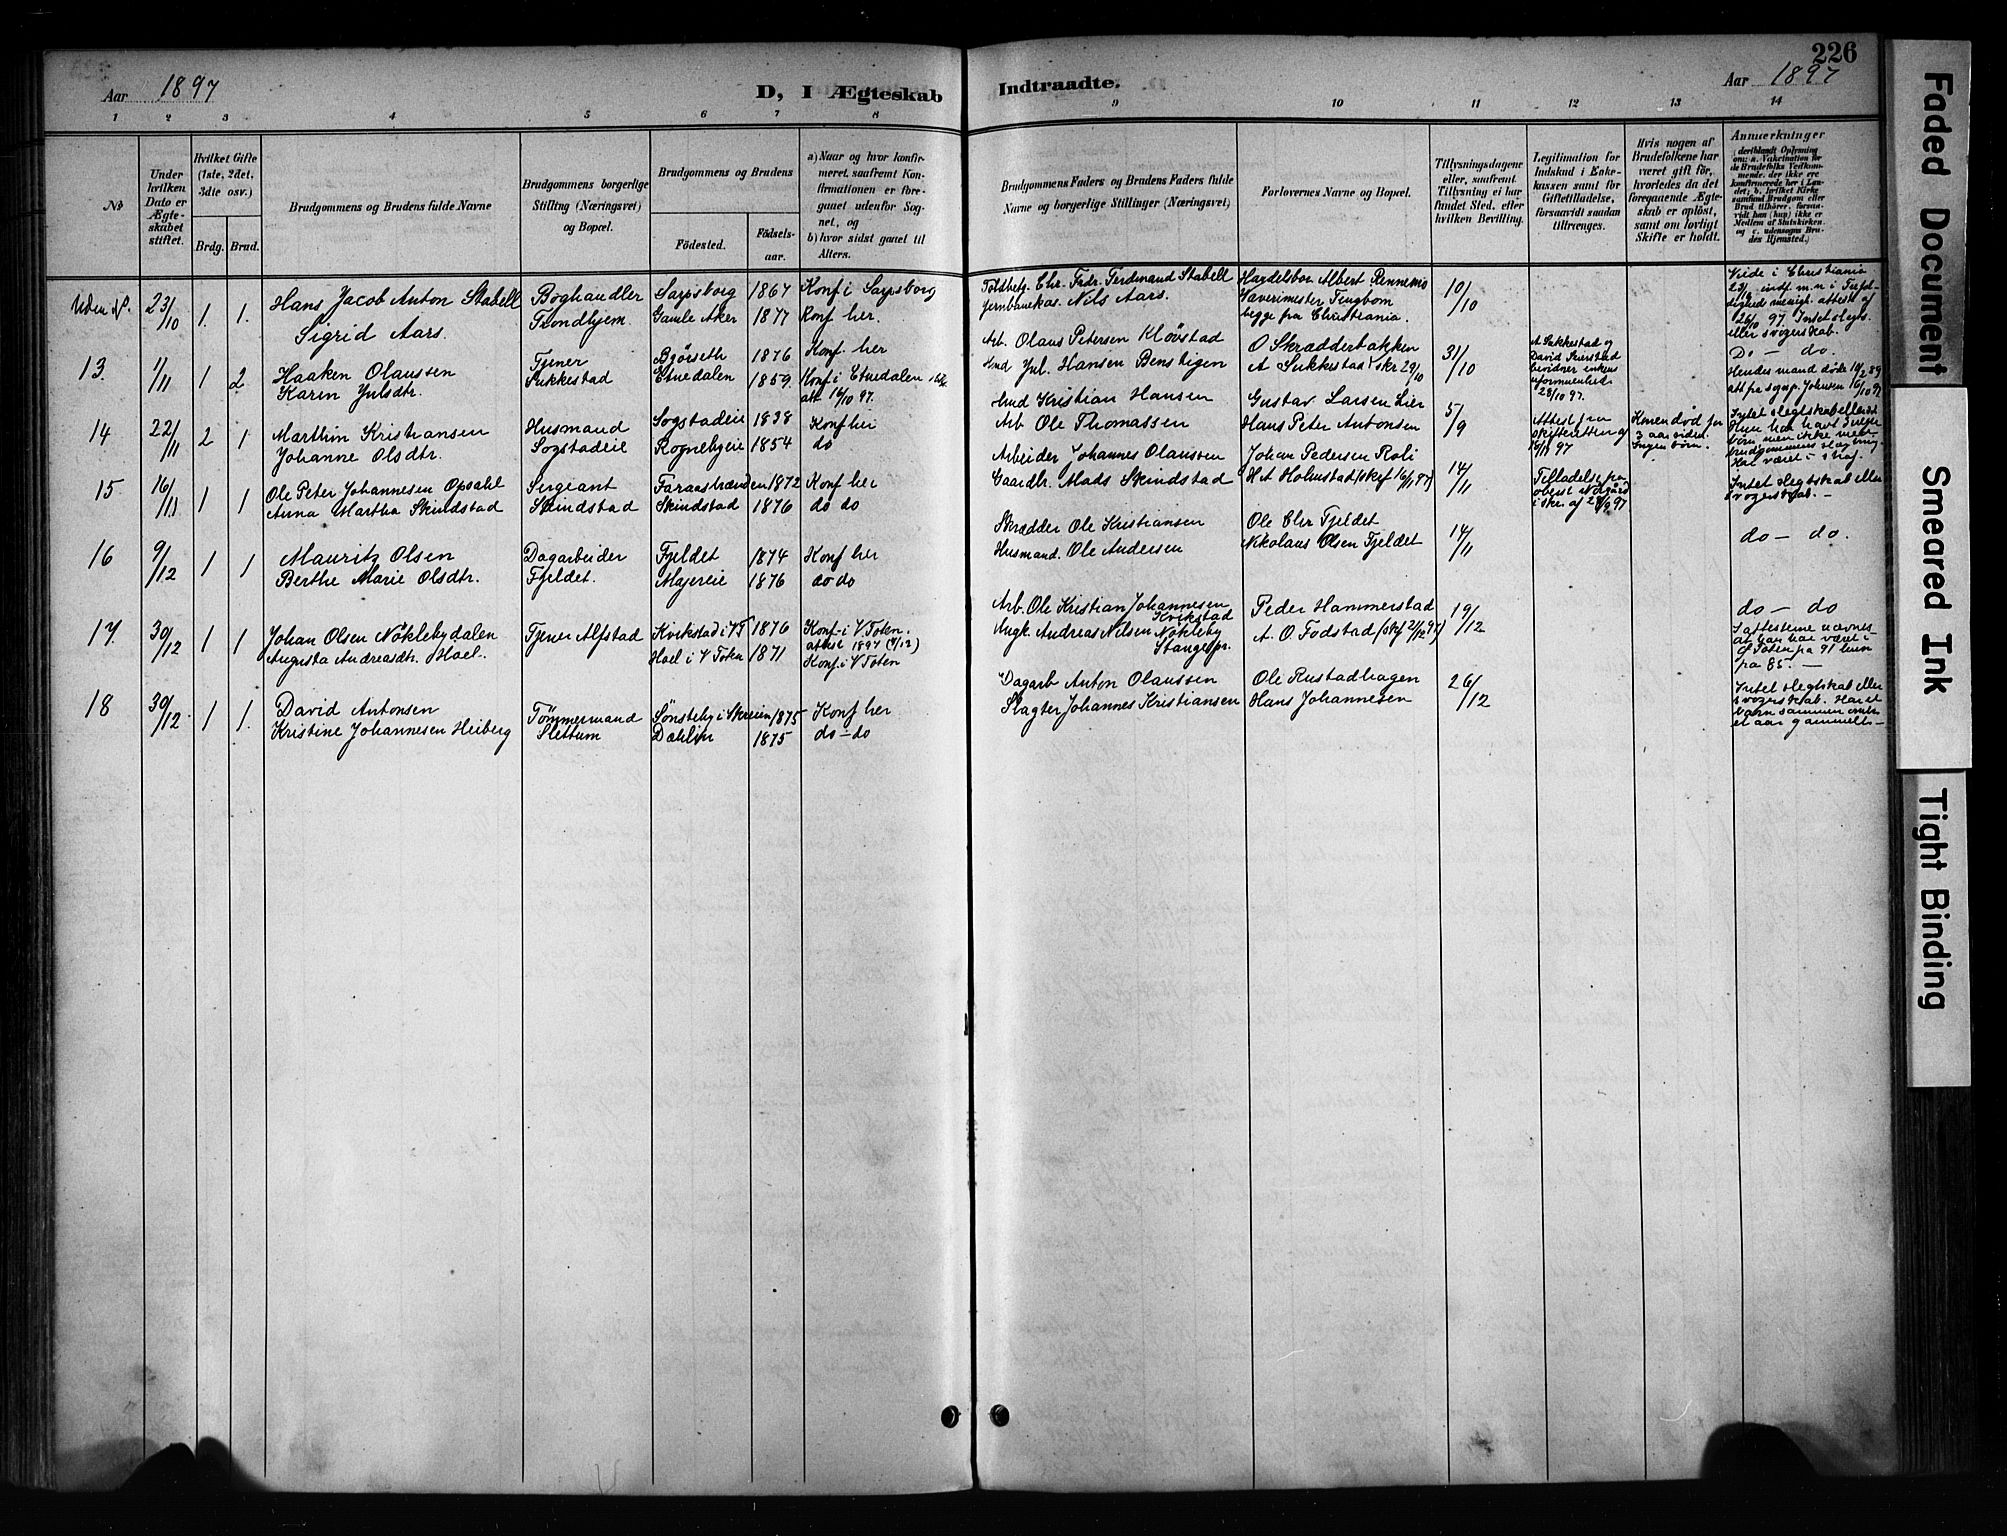 Aar 1897
D, I Ægteskab
Indtraadte.
226
Aar 1897
1 2 3 4 5 6 7 8 9 10 11 12 13 14
No
Under hvilken Dato er Ægteskabet stiftet.
Hvilket Gifte (1ste, 2det, 3die osv.)
Brdg. Brud.
Brudgommens og Brudens fulde Navne
Brudgommens borgerlige Stilling (Næringsvei) og Bopæl.
Brudgommens og Brudens
Födested. Födsels-aar.
a) Naar og hvor konfirmeret, saafremt Konfirmationen er foregaaet udenfor Sognet, og
b) hvor sidst gaaet til Alters.
Brudgommens Faders og Brudens Faders fulde Navne og borgerlige Stillinger (Næringsvei)
Forlovernes Navne og Bopæl.
Tillysningsdagene eller, saafremt Tillysning ei har fundet Sted, efter hvilken Bevilling.
Legitimation for Indskud i Enkekassen samt for Giftetilladelse, forsaavidt saadan tiltrænges.
Hvis nogen af Brudefolkene har været gift för, hvorledes da det foregaaende Ægteskab er oplöst, samt om lovligt Skifte er holdt.
Anmærkninger
Uden of. 23/10 1. 1. Hans Jacob Anton Stabell Boghandler Sarpsborg 1867 Konf i Sarpsborg
Sigrid Aars. Trondhjem. Gamle Aker 1877 Konf her.
Toldbetj. Chr. Frdr. Ferdinand Stabell
Jernbanekas. Nils Aars.
Handelsbor Albert Rennemo
begge fra Christiania.
10/10
Viede i Christiania
eller svogerskab.
13. 1/11 1 2 Haaken Olaussen Tjener Bjørseth 1876 Konf. her
Karen Julsdtr. Sukkestad Etnedalen 1859 Konf i Etnedalen
att 16/10 97.
Arb. Olaus Petersen Kløvstad
Hmd Jul. Hansen Benstigen
O Skrædderbakken
A Sukkestad skr 29/10
31/10
A Sukkestad og
David
bevidner enkens
uformuenhed
28/10 97.
Do – do.
Hendes mand døde
14 22/11 2 1 Marthin Kristiansen Husmand Sogstadeie 1838 Konf her
Johanne Olsdtr. Sogstadeie Rognebyeie 1854 do
Hmd Kristian Hansen
Arb Ole Thomassen
Gustav Larsen Lier
Hans Peter Antonsen
5/9
Attest fra
skifteretten af
97
Konen død for
3 aar siden.
Ingen børn.
15 16/11 1 1 Ole Peter Johannesen Opsahl Sergeant 1872 Konf her
Anna Martha Skindstad Skindstad Skindstad 1876 do do
Arbeider Johannes Olaussen
Gaardbr. Mads Skindstad
Johan Pedersen Roli
H A Holmstad
14/11
Tilladelse fra
oberst
Intet slegtskab eller
svogerskab. –
16 9/12 1 1 Mauritz Olsen Dagarbeider Fjeldet 1874 Konf her
Berthe Marie Olsdtr. Fjeldet. Majereie 1876 do do
Skrædder Ole Kristiansen
Husmand. Ole Andersen
Ole Chr Fjeldet
Nikolaus Olsen Fjeldet
14/11
do – do.
17. 30/12 1 1 Johan Olsen Nöklebydalen Tjener Alfstad Kvikstad i VT 1876 Konf. i V Toten.
attest 1897
Augusta Andreasdtr. Hoel. Hoel i V Toten 1871 Konf. i V Toten
Arb. Ole Kristian Johannesen
Kvikstad
Ungk. Andreas Nilsen Nökleby
Stangepr.
Peder Hammerstad
A. O. Fodstad (skr 2/12 97)
19/12
do – do
I attesterne nævnes
at han har været i
Ø Toten fra 91 hun
fra 85 –
18 30/12 1 1. David Antonsen Tömmermand Sönsteby i Skreien 1875 Konf her
Kristine Johannesen Heiberg Slettum Dæhlin 1875 do – do
Dagarb Anton Olaussen
Slagter Johannes Kristiansen
Ole Rustadhagen
Hans Johannesen
26/12
Intet slegtskab eller
svogerskab. Har et
barn sammen
et aar gammelt –
Faded Document
Smeared Ink
Tight Binding